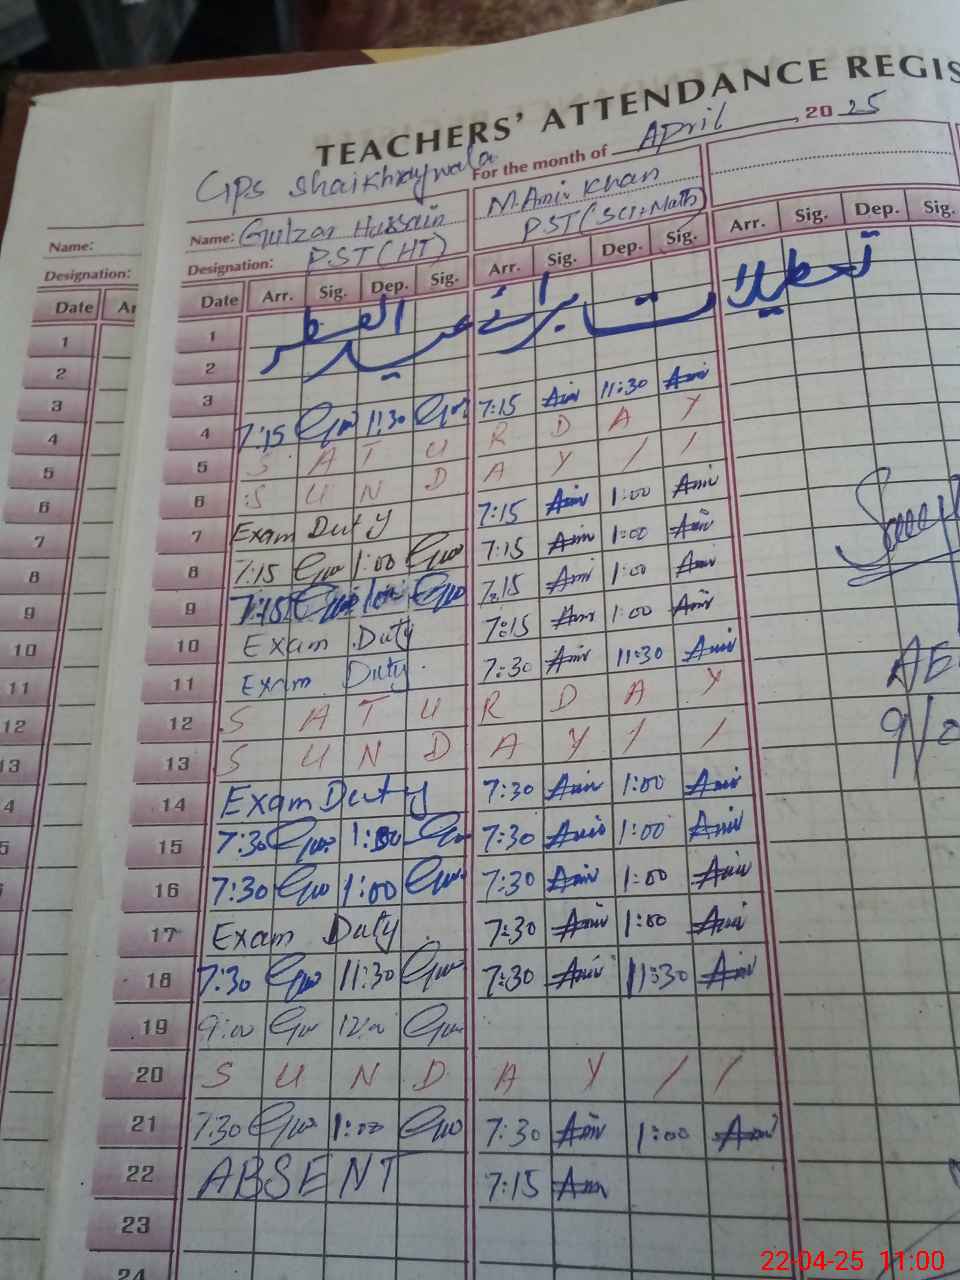 TEACHERS' ATTENDANCE REGIS
GPS Shaikhraywala For the month of April, 2025
Name: Name: Gulzar Hussain M. Amir Khan
Designation: Designation: PST(HT) PST(Sci+Math)
Date Ar Date Arr. Sig. Dep. Sig. Arr. Sig. Dep. Sig. Arr. Sig. Dep. Sig.
تعطیلات برائے عید الفطر
1 1
2 2
3 3
4 4 7:15 11:30 7:15 Amir 11:30 Amir
5 5 S A T U R D A Y
6 6 S U N D A Y / /
7 7 Exam Duty 7:15 Amir 1:00 Amir
8 8 7:15 1:00 7:15 Amir 1:00 Amir
9 9 7:15 7:15 Amir 1:00 Amir
10 10 Exam Duty 7:15 Amir 1:00 Amir
11 11 Exam Duty 7:30 Amir 11:30 Amir
12 12 S A T U R D A Y
13 13 S U N D A Y / /
4 14 Exam Duty 7:30 Amir 1:00 Amir
5 15 7:30 1:00 7:30 Amir 1:00 Amir
16 7:30 1:00 7:30 Amir 1:00 Amir
17 Exam Duty 7:30 Amir 1:00 Amir
18 7:30 11:30 7:30 Amir 11:30 Amir
19 9:00 12:00
20 S U N D A Y / /
21 7:30 1:00 7:30 Amir 1:00 Amir
22 ABSENT 7:15 Amir
23
24
22-04-25 11:00